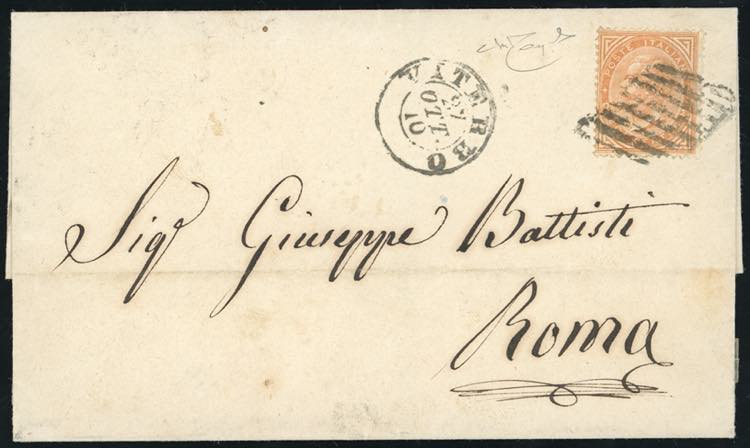 POSTE ITALIANE
VITERBO
10
OTT
Sigr Giuseppe Battisti
Roma